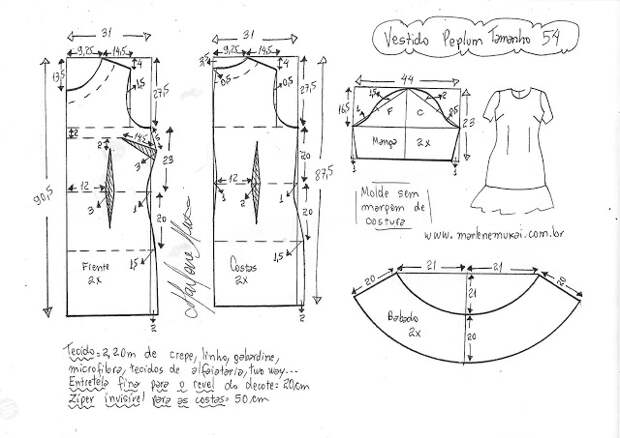 Vestido Peplum Tamanho 54
31
9,25 14,5
4
13,5
1,5
27,5
2
14,5
2
3
23
12
3
1
20
1,5
90,5
Frente
2x
2
Marlene Mukai
31
9,25 14,5
3
4
0,5
0,5
27,5
20
12
3
1
20
1,5
87,5
Costas
2x
2
44
16,5
1,5
2
F
C
0,5
23
Manga 2x
1
1
Molde sem
margem de
costura
www.marlenemukai.com.br
20
21
21
20
21
20
Babado
2x
Tecido = 2,20m de crepe, linho, gabardine,
microfibra, tecidos de alfaiataria, two way...
Entretela fina para o revel do decote = 20cm
Zíper invisível para as costas = 50cm